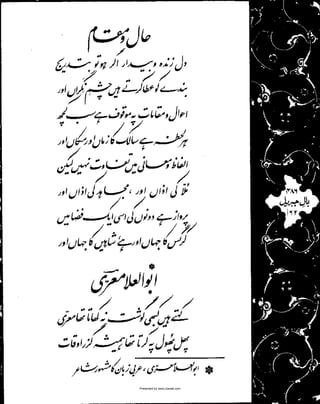 حال و مقام
دل زندہ و بیدار اگر ہو تو بتدریج
بندے کو عطا کرتے ہیں چشمِ نگراں اور
احوال و مقامات پہ موقوف ہے سب کچھ
ہر لحظہ ہے سالک کا زماں اور مکاں اور
الفاظ و معانی میں تفاوت نہیں لیکن
مُلّا کی اذاں اور، مجاہد کی اذاں اور
پرواز ہے دونوں کی اسی ایک فضا میں
کرگس کا جہاں اور ہے، شاہیں کا جہاں اور
ابوالعلا معرّیؔ
کہتے ہیں کبھی گوشت نہ کھاتا تھا معرّی
پھل پھول پہ کرتا تھا ہمیشہ گزر اوقات
* ابوالعلا معرّی، عربی زبان کا مشہور شاعر
۳۸۶
بالِ جبریل
۱۶۲
Presented by www.ziaraat.com